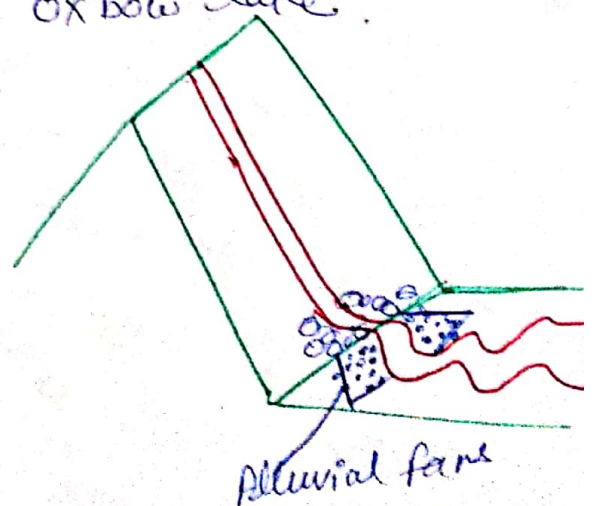 Ox bow lake.
Alluvial fans